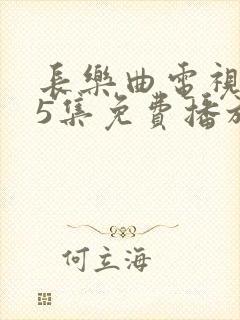 長樂曲電視
5集免費播放
何立海